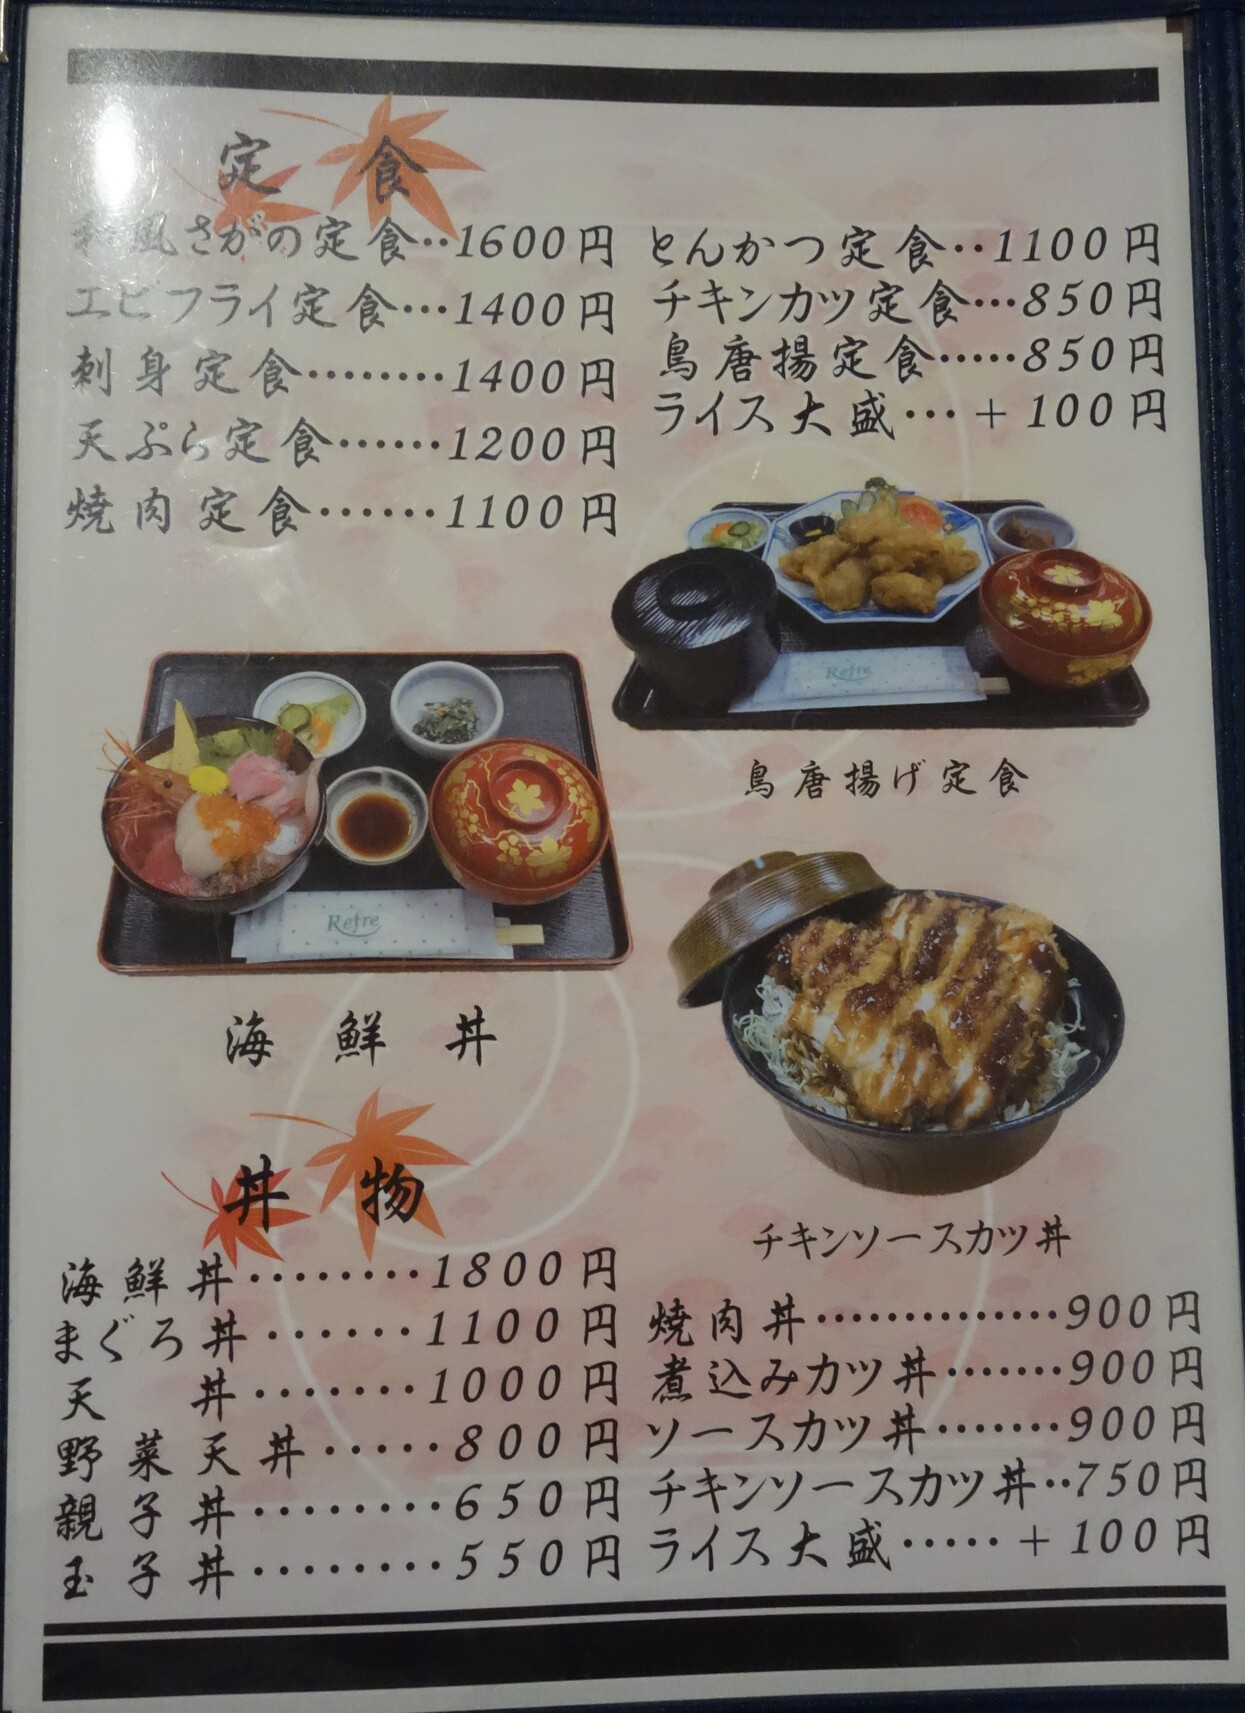 定食
和風さがの定食‥1600円
エビフライ定食…1400円
刺身定食………1400円
天ぷら定食……1200円
焼肉定食……1100円
とんかつ定食‥1100円
チキンカツ定食…850円
鳥唐揚定食…‥850円
ライス大盛…＋100円
Refre
鳥唐揚げ定食
Refre
海鮮丼
チキンソースカツ丼
丼物
海鮮丼………1800円
まぐろ丼……1100円
天丼………1000円
野菜天丼…‥800円
親子丼………650円
玉子丼………550円
焼肉丼……………900円
煮込みカツ丼……‥900円
ソースカツ丼……‥900円
チキンソースカツ丼‥750円
ライス大盛…‥＋100円